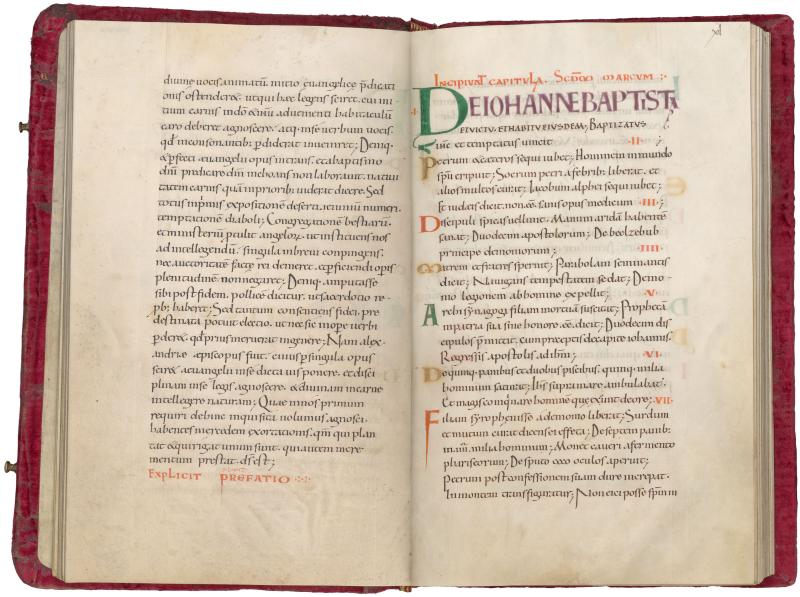 divine vocis animatū. initio evangelice p̄dicati
onis ostenderet; ut qui hæc legens sciret. cui ini
tium carnis in dn̄o & ih̄u advenienti habitaculū
caro deberet agnoscere. atq; in se verbum vocis.
qđ in consonantib; p̄diderat inveniret; Deniq;
& p̄fecti evangelii opus intrans. et a baptismo
dn̄i predicare dm̄ inchoans non laboravit. nativi
tatem carnis quam in prioribus viderat dicere. Sed
totus in p̄mis expositionē deserti. ieiuniū numeri.
temptationē diaboli; Congregationē bestiarū.
et ministeriū ptulit angeloꝝ. ut instituens nos
ad intellegendū. singula in brevi conpingens.
nec auctoritatē factę rei demeret. & p̄ficiendi opus
plenitudinē non negaret; Deniq; amputasse
sibi post fidem. pollicē dicitur. ut sacerdotio re
pb; haberet; Sed tantum consentiens fidei. pre
destinata potuit electio. ut nec sic in ope verbi
p̄deret. qđ prius meruerat in genere; Nam alex
andriæ episcopus fuit. cuius p̄ singula opus
scire. & evangelii in se dicta disponere. et disci
plinam in se legis agnoscere. & divinam in carne
intellegere naturam; Quæ in nos primum
requiri. dehinc inquisita volumus agnosci.
habentes mercedem exortationis. qm̄ qui plan
tat & qui rigat unum sunt. qui autem incre
mentum prestat. ds̄ est;
EXPLICIT PREFATIO
xl
INCIPIUNT CAPITULA. SCDM MARCUM
DE IOHANNE BAPTISTA
ET VICTU. ET HABITU EIUSDEM; BAPTIZATUS
ihc̄ et temptatus vincit. II
Petrum & ceteros sequi iubet; Hominem inmundo
spū eripuit; Socrum petri a febrib; liberat. et
alios multos curat; Iacobum alphei sequi iubet;
Et iudeis dicit. non eē sanis opus medicum. III
Discipuli spicas vellunt. Manum aridā habentē
sanat; Duodecim apostolorum; De beelzebub
principe demoniorum; IIII
Matrem et fratres spernit; Parabolam seminantis
dicit; Navigans tempestatem sedat; Demo
nio legionem ab homine expellit; V
Archisynagogi filiam mortuā suscitat; Prophetā
in patria sua sine honore eē dicit; Duodecim dis
cipulos mittit. cum preceptis; De capite iohannis.
Regressis apostolis ad ihm̄; VI
De quinq; panibus et duobus piscibus. quinq; milia
hominum saturat; Ihs̄ supra mare ambulabat;
Et magis coinquinare homine quę exeunt de ore; VII
Filiam syrophinissę a demonio liberat; Surdum
et mutum curat dicens ei effeta; De septem panib;
in .iiii. milia hominum; Monet caveri a fermento
phariseorum; De sputo ceco oculos aperuit;
Petrum post confessionem suam dure increpat.
In montem transfiguratur; Non eici posse spm̄ in